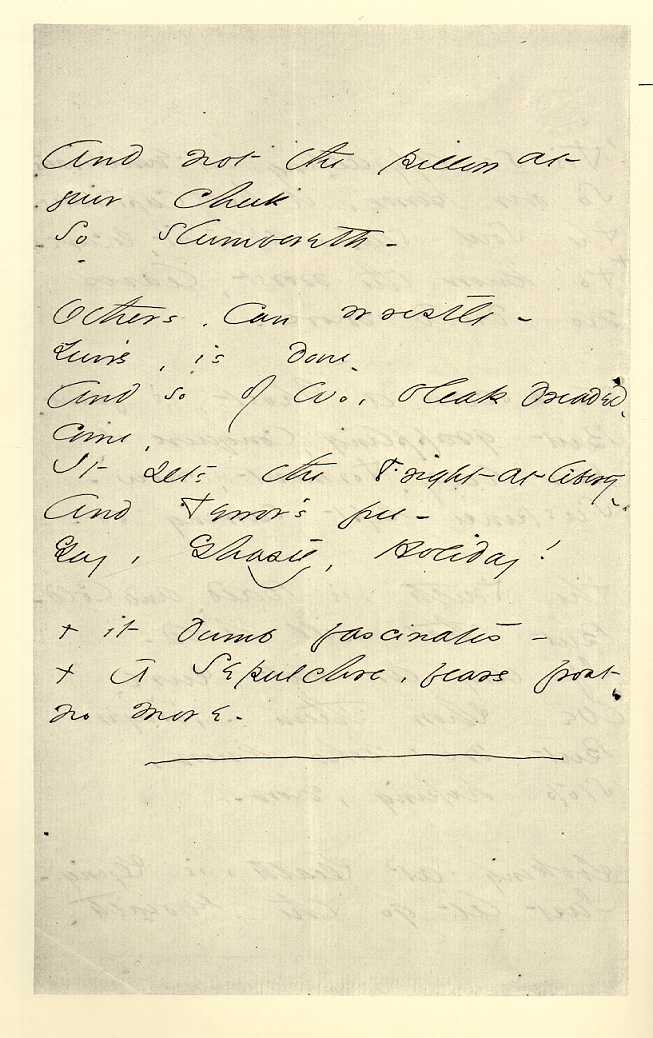 And not the pillow at
your Cheek
So Slumbereth -
Others, Can wrestle -
Your's, is done -
And so of Wo, bleak dreaded -
come,
It sets the Fright at liberty -
And Terror's free -
Gay, Ghastly, Holiday!
+ it dumb fascinates -
+ A Sepulchre, fears frost
no more -